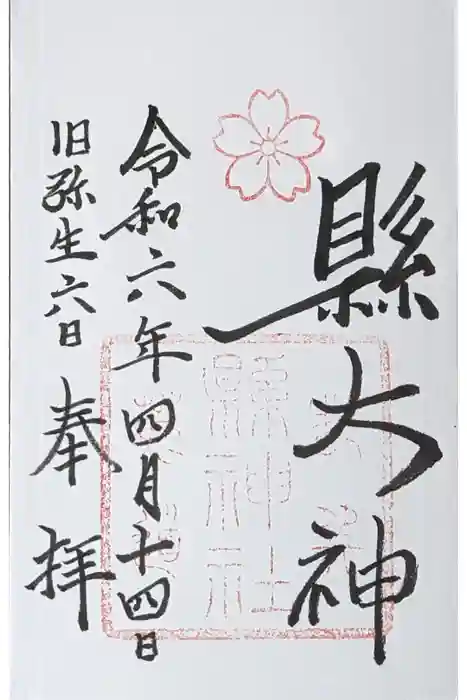 縣大神
令和六年四月十四日
旧弥生六日
奉拝
縣神社